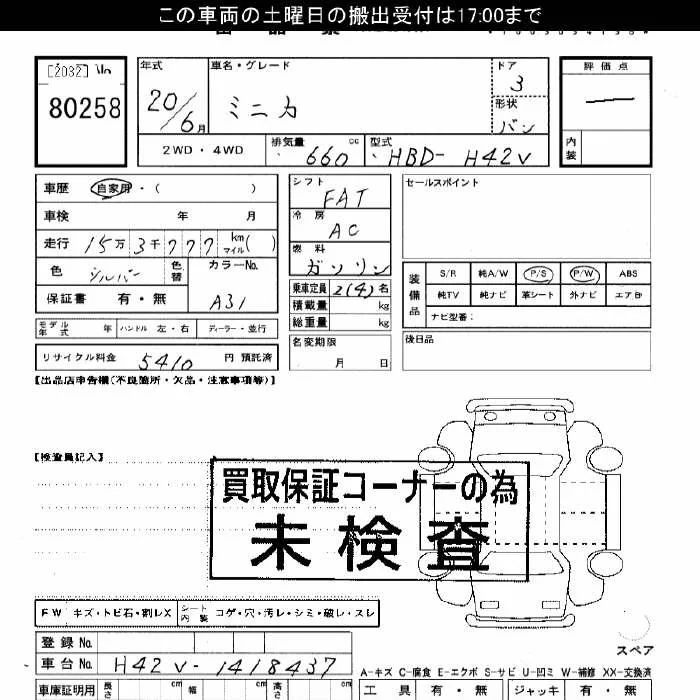 この車両の土曜日の搬出受付は17:00まで
[2032] No
80258
年式 20/6月
車名・グレード ミニカ
ドア 3
形状 バン
評価点
内装
2WD・4WD
排気量 660 cc
型式 HBD-H42V
車歴 自家用・( )
車検 年 月
走行 15万3千777 km マイル( )
色 シルバー 色替
カラーNo. A31
保証書 有・無
モデル年式 年 ハンドル 左・右 ディーラー・並行
リサイクル料金 5410 円 預託済
シフト FAT
冷房 AC
燃料 ガソリン
乗車定員 2(4)名
積載量 kg
総重量 kg
名変期限 月 日
セールスポイント
装備品
S/R 純A/W P/S P/W ABS
純TV 純ナビ 革シート 外ナビ エアB
ナビ型番:
後日品
【出品店申告欄(不良箇所・欠品・注意事項等)】
【検査員記入】
買取保証コーナーの為
未検査
FW キズ・トビ石・割レX シート内装 コゲ・穴・汚レ・シミ・破レ・スレ
スペア
登録No.
車台No. H42V-1418437
A-キズ C-腐食 E-エクボ S-サビ U-凹ミ W-補修 XX-交換済
車庫証明用 長さ cm 幅 cm 高さ cm
工具 有・無 ジャッキ 有・無